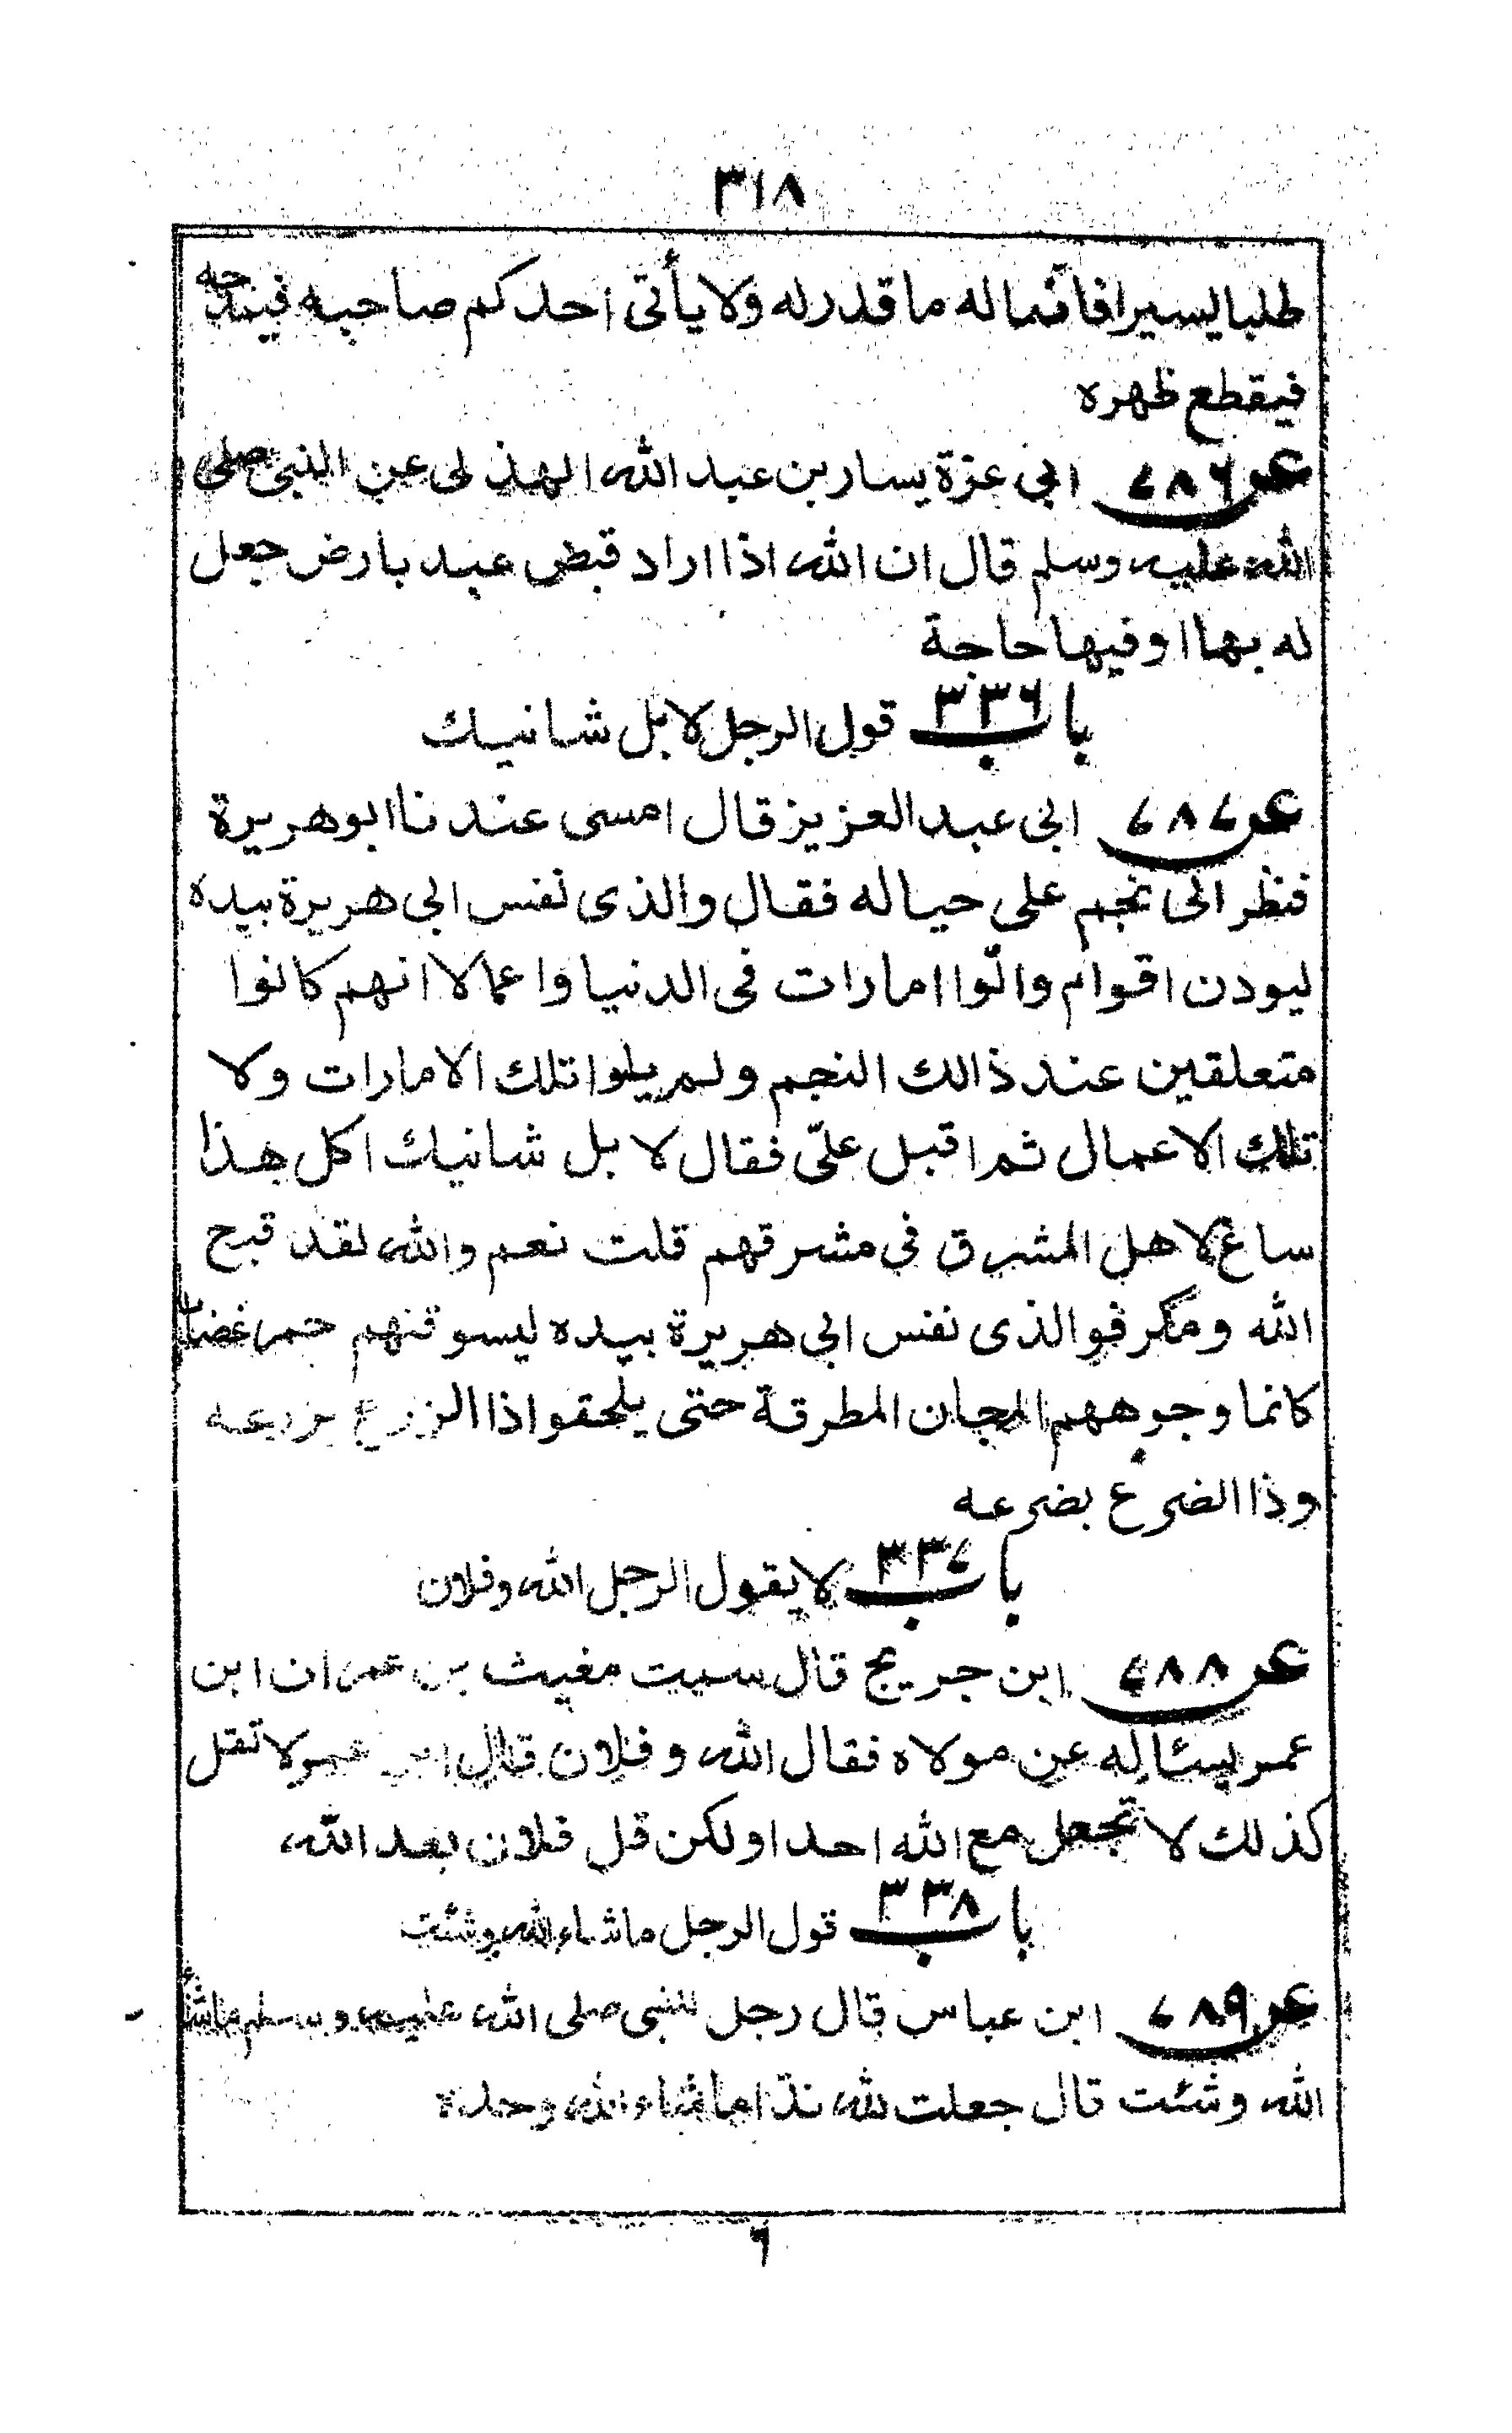 ٣١٨
طلبا يسيرا فانما له ما قدر له ولا يأتى احدكم صاحبه فيمدحه
فيقطع ظهره
عن ٧٨٦ ابى عزة يسار بن عبد الله الهذلى عن النبى صلى
الله عليه وسلم قال ان الله اذا اراد قبض عبد بارض جعل
له بها اوفيها حاجة
باب ٣٣٦ قول الرجل لا بل شانيك
عن ٧٨٧ ابى عبد العزيز قال امسى عندنا ابو هريرة
فنظر الى نجم على حياله فقال والذى نفس ابى هريرة بيده
ليودن اقوام والّوا امارات فى الدنيا واعمالا انهم كانوا
متعلقين عند ذالك النجم ولم يلوا تلك الامارات ولا
تلك الاعمال ثم اقبل علىّ فقال لا بل شانيك اكل هذا
ساغ لاهل المشرق فى مشرقهم قلت نعم والله لقد قبح
الله ومكر فوالذى نفس ابى هريرة بيده ليسوقنهم حمرا غضابا
كانما وجوههم المجان المطرقة حتى يلحقوا ذا الزرع بزرعه
وذا الضرع بضرعه
باب ٣٣٧ لا يقول الرجل الله وفلان
عن ٧٨٨ ابن جريج قال سميت مغيث بن عمران ابن
عمر يسئاله عن مولاه فقال الله وفلان قال ابن عمر لا تقل
كذلك لا تجعل مع الله احدا ولكن قل فلان بعد الله
باب ٣٣٨ قول الرجل ماشاء الله وشئت
عن ٧٨٩ ابن عباس قال رجل للنبى صلى الله عليه وسلم ماشأ
الله وشئت قال جعلت لله ندّا ماشاء الله وحده
٦